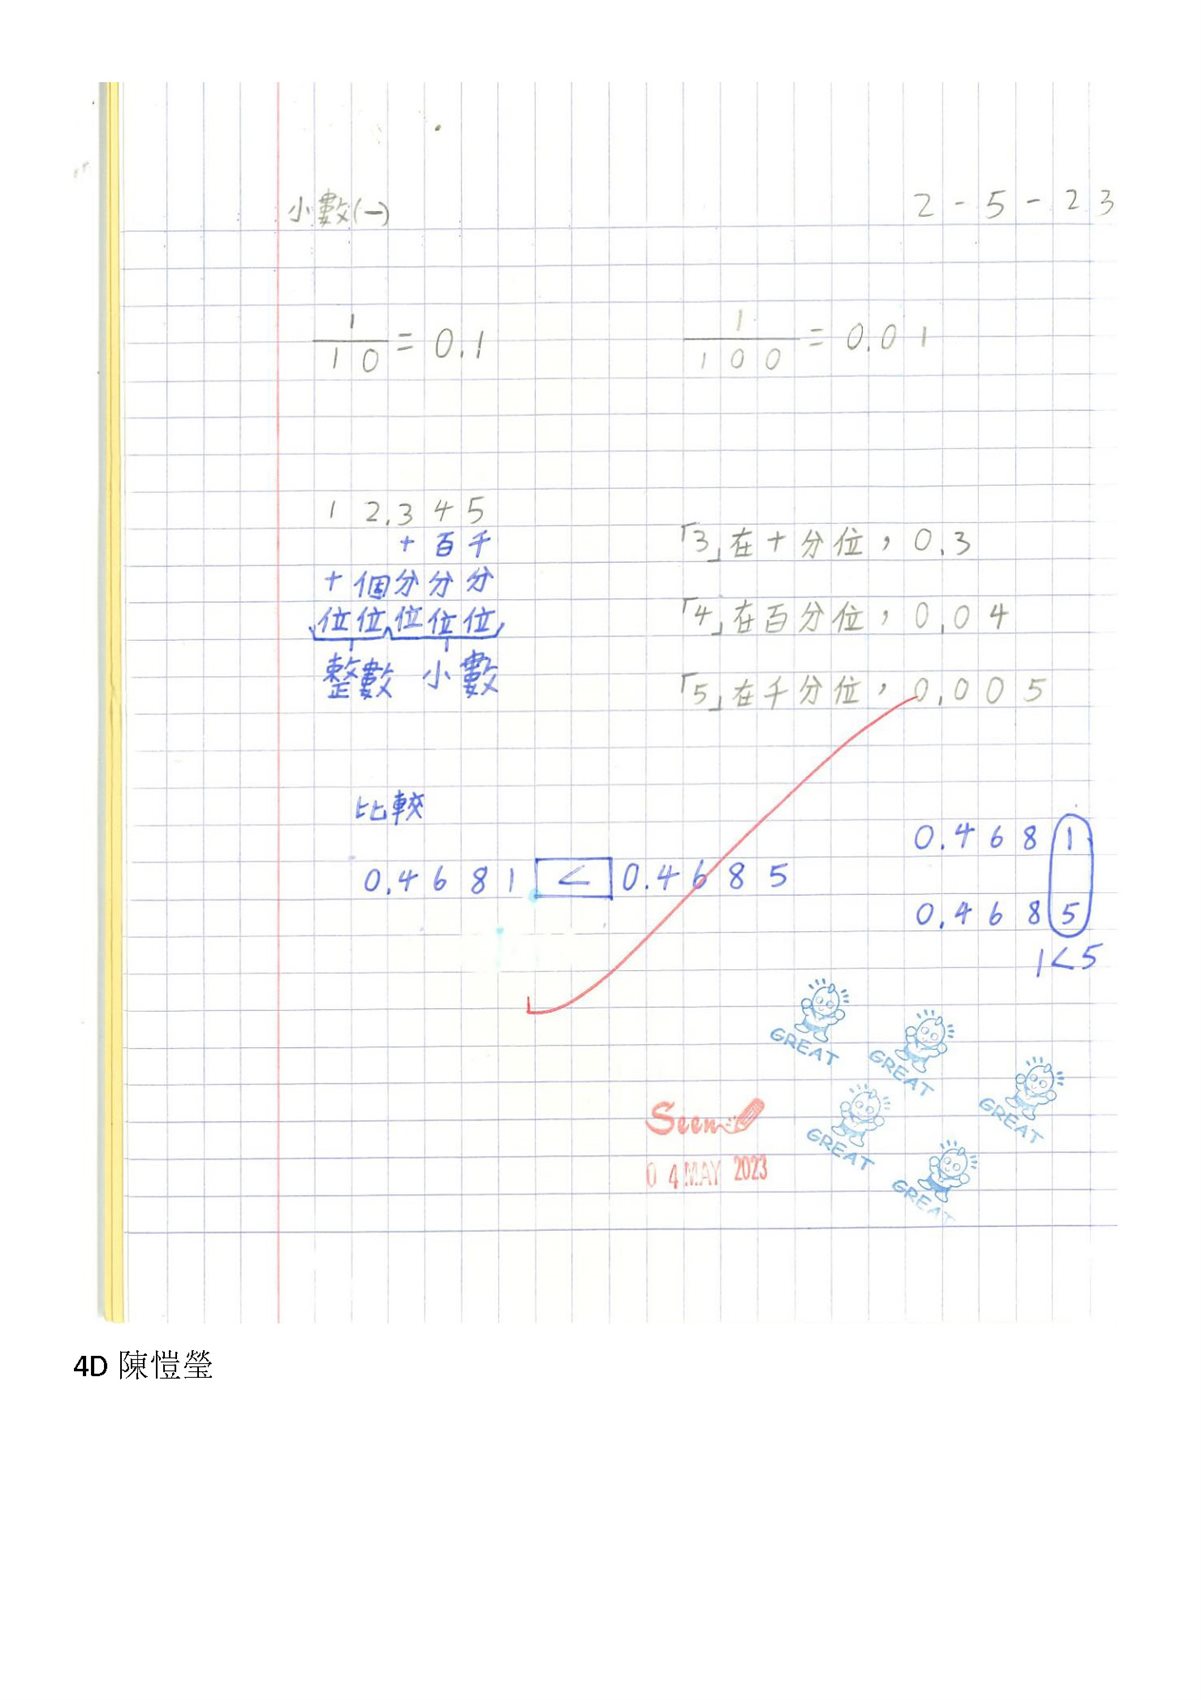 小數(一) 2-5-23
1/10 = 0.1 1/100 = 0.01
12.345
十百千
十個分分分
位位位位位
整數 小數
「3」在十分位，0.3
「4」在百分位，0.04
「5」在千分位，0.005
比較
0.4681 < 0.4685
0.4681
0.4685
1<5
GREAT
GREAT
GREAT
GREAT
GREAT
Seen
04 MAY 2023
4D 陳愷瑩